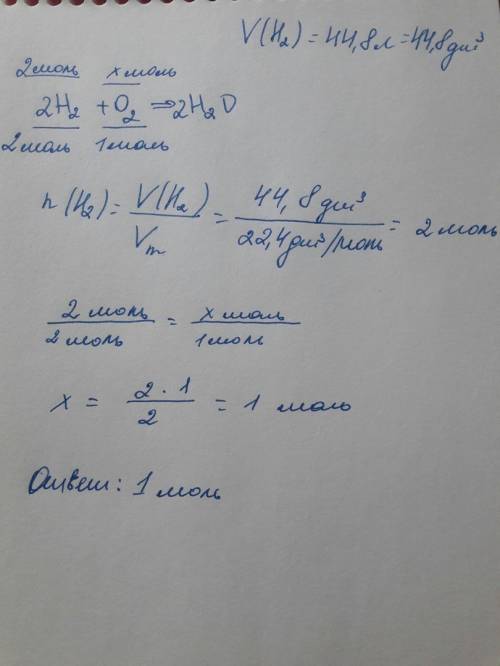 V(H₂) = 44,8л = 44,8дм³
2моль x моль
2H₂ + O₂ ⇒ 2H₂O
2моль 1моль
n(H₂) = V(H₂) / Vm = 44,8дм³ / 22,4дм³/моль = 2 моль
2 моль / 2 моль = x моль / 1 моль
x = 2 · 1 / 2 = 1 моль
Ответ: 1 моль